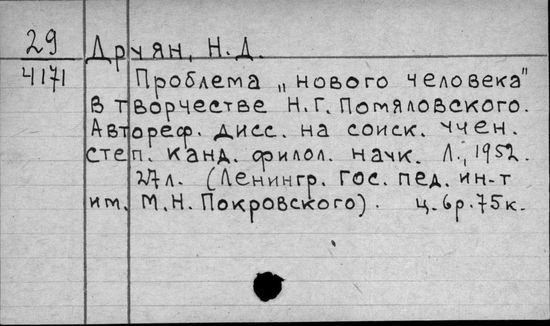 29
4171
Друян, Н.Д.
Проблема „нового человека"
в творчестве Н.Г. Помяловского.
Автореф. дисс. на соиск. учен.
степ. канд. филол. наук. Л., 1952.
27л. (Ленингр. Гос. пед. ин-т
им. М.Н. Покровского). ц. 6р. 75к.